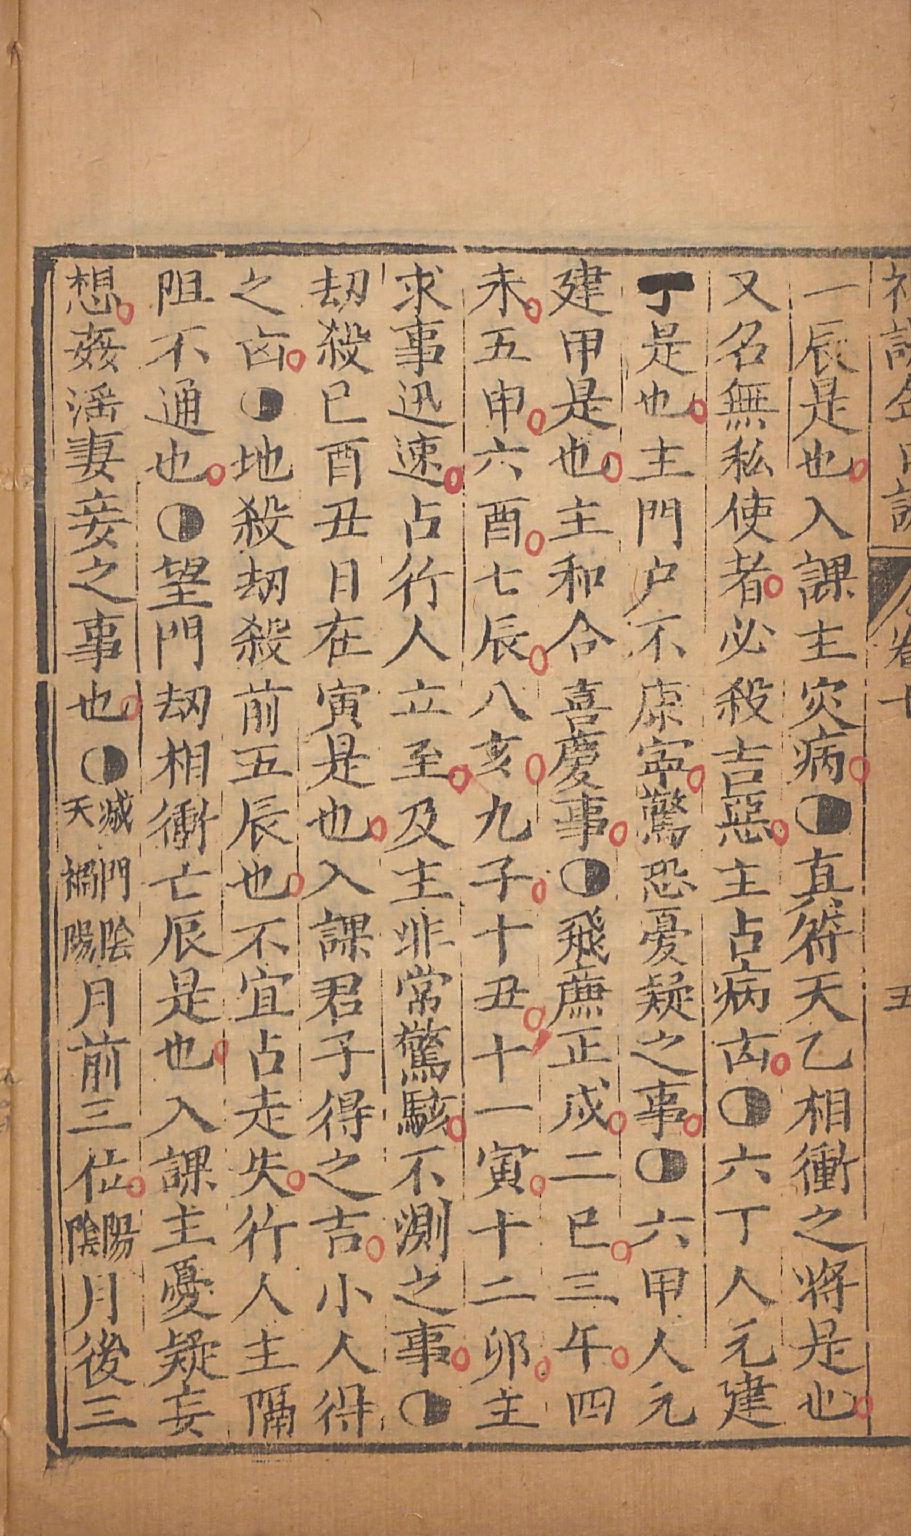 一辰是也入課主灾病◐真符天乙相衝之將是也
又名無私使者必殺吉惡主占病㐫◐六丁人元建
丁是也主門户不康寧驚恐憂疑之事◐六甲人元
建甲是也主和合喜慶事◐飛廉正戍二巳三午四
未五申六酉七辰八亥九子十丑十一寅十二卯主
求事迅速占行人立至及主非常驚駭不測之事◐
刼殺巳酉丑日在寅是也入課君子得之吉小人得
之㐫◐地殺刼殺前五辰也不宜占走失行人主隔
阻不通也◐望門刼相衝亡辰是也入課主憂疑妄
想姦滛妻妾之事也◐天禍陽滅門陰月前三位陰陽月後三
卷十
五